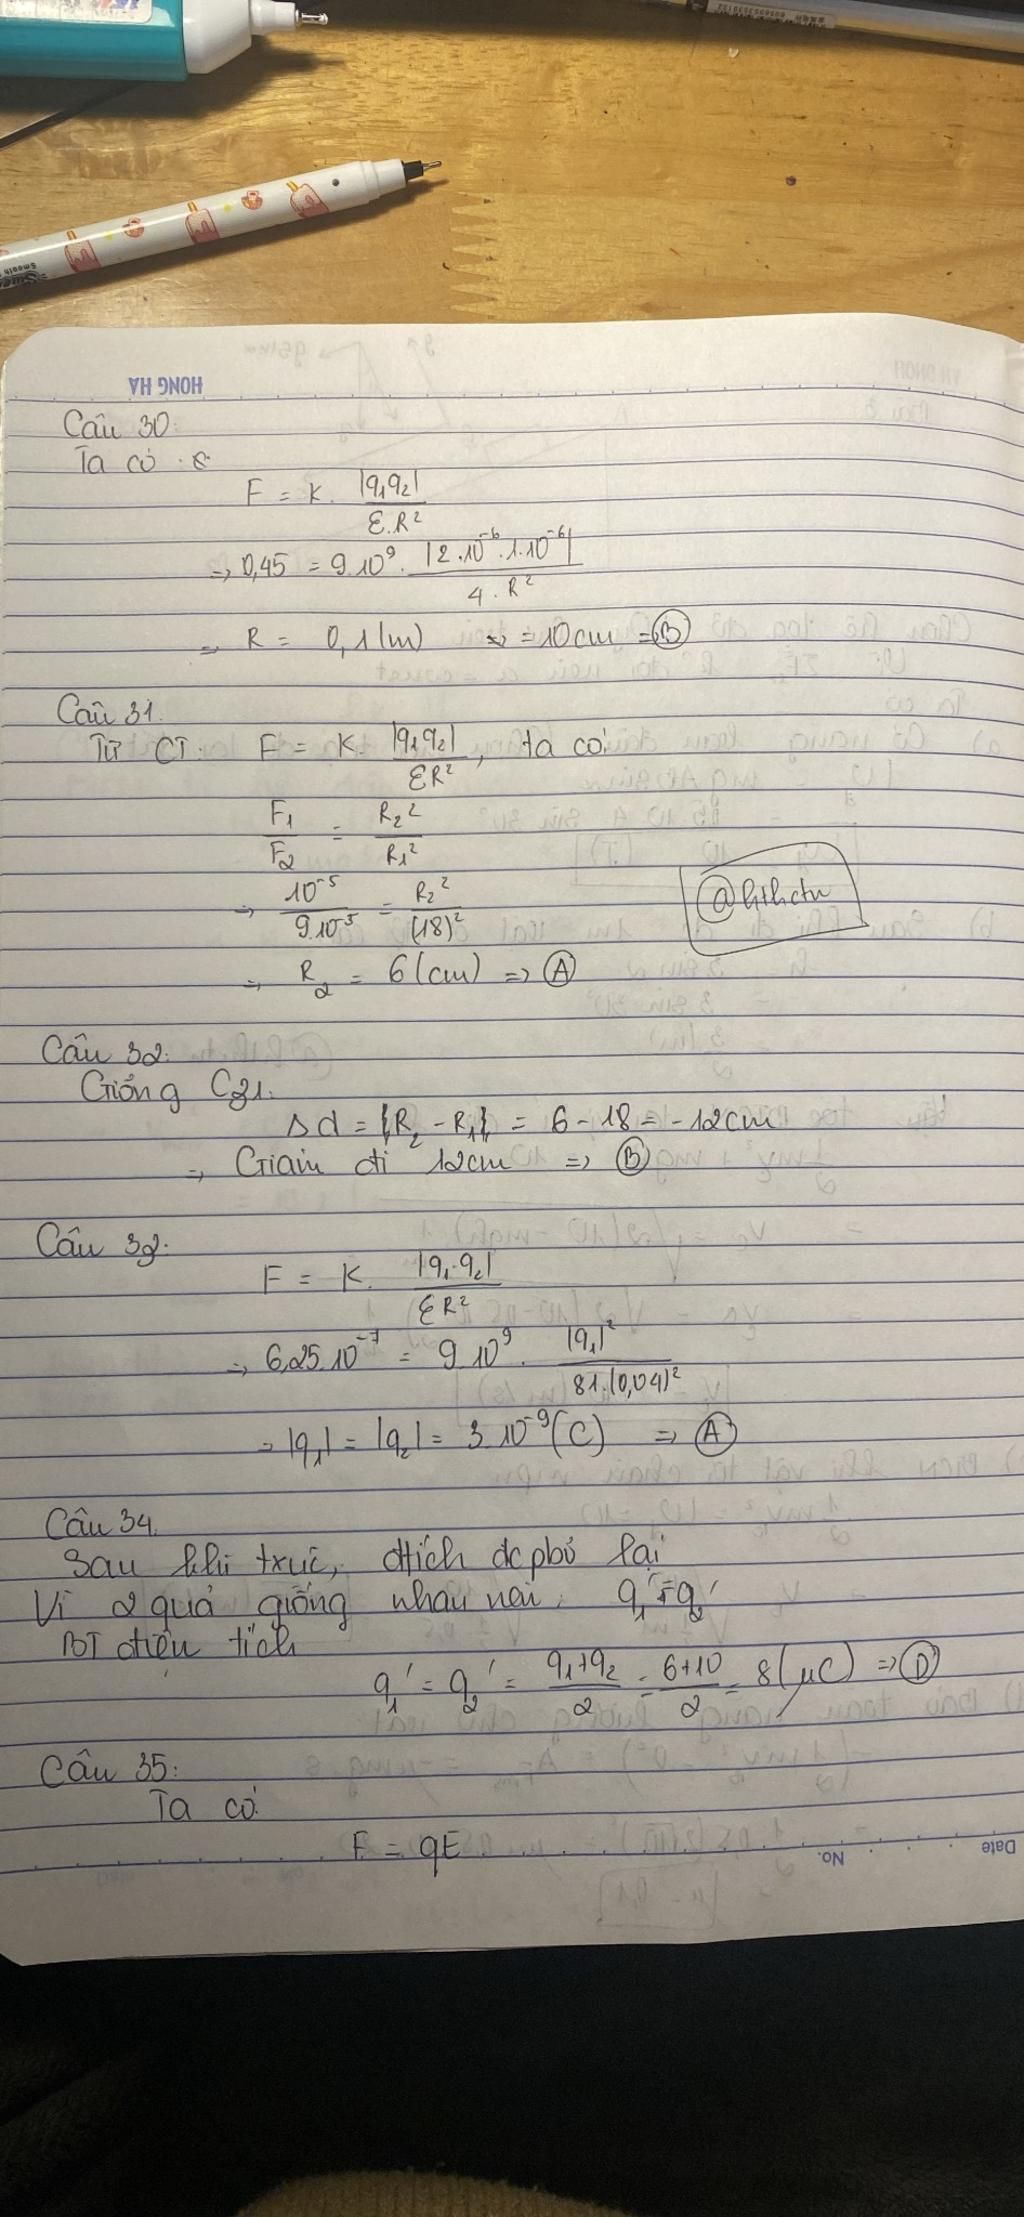 HONG HA
Câu 30:
Ta có:
F = K. |q₁q₂| / ε.R²
=> 0,45 = 9.10⁹. |2.10⁻⁶.1.10⁻⁶| / 4.R²
=> R = 0,1(m) => =10cm =>(B)
Câu 31.
Từ CT: F = K. |q₁q₂| / εR², ta có:
F₁/F₂ = R₂²/R₁²
=> 10⁻⁵/9.10⁻⁵ = R₂²/(18)²
@hthctn
=> R₂ = 6(cm) => (A)
Câu 32:
Giống C31.
Δd = |R₂ - R₁| = 6 - 18 = -12cm
=> Giảm đi 12cm => (B)
Câu 33:
F = K. |q₁.q₂| / εR²
=> 6,25.10⁻⁷ = 9.10⁹. |q₁|² / 81.(0,04)²
=> |q₁| = |q₂| = 3.10⁻⁹(C) => (A)
Câu 34.
Sau khi txuc, đtích đc pbố lại
Vì 2 quả giống nhau nên: q₁' = q₂'
BT điện tích
q₁' = q₂' = (q₁+q₂)/2 = (6+10)/2 = 8(μC) => (D)
Câu 35:
Ta có:
F = qE
No.
Date